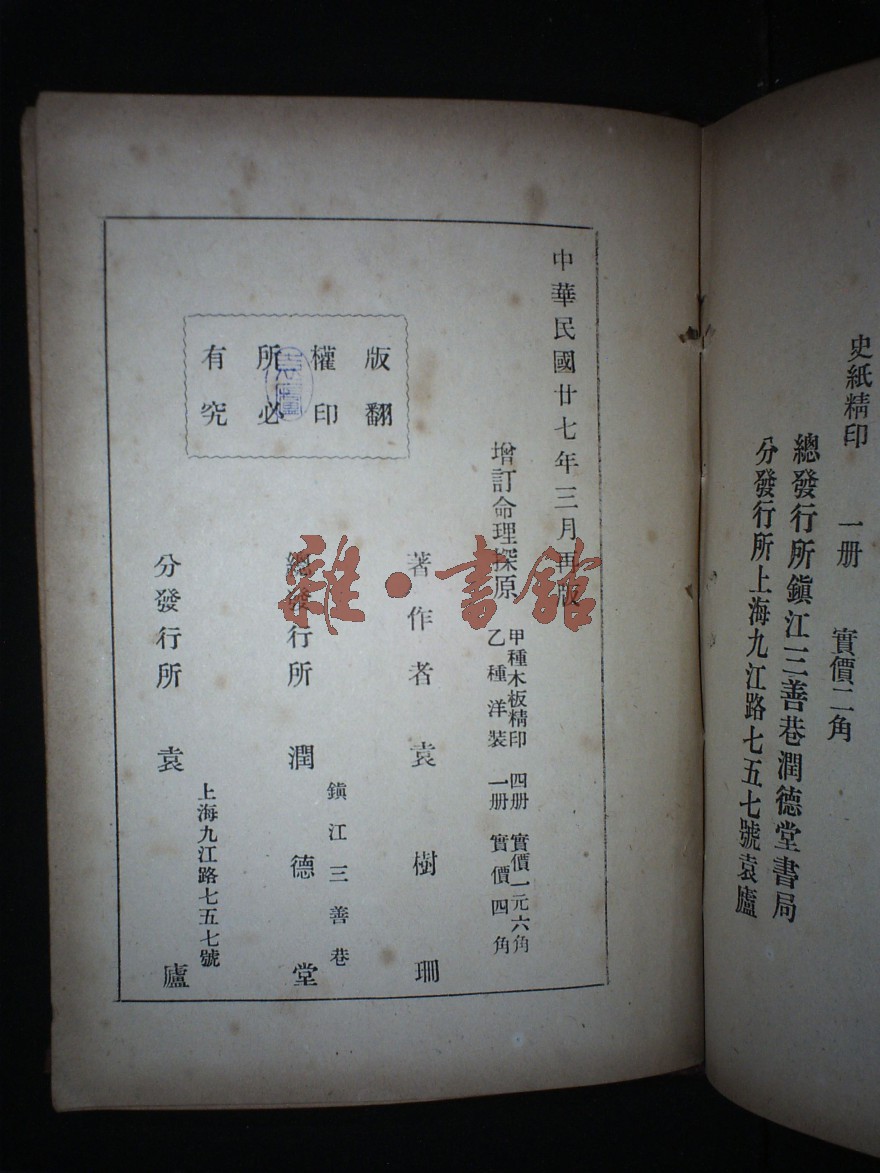 史紙精印　一册　實價二角
總發行所鎭江三善巷潤德堂書局
分發行所上海九江路七五七號袁廬
中華民國廿七年三月再版
增訂命理探原
甲種木板精印　四册　實價一元六角
乙種洋裝　一册　實價四角
版權所有
翻印必究
著作者袁樹珊
總發行所　潤德堂
鎭江三善巷
分發行所　袁廬
上海九江路七五七號
雜·書館